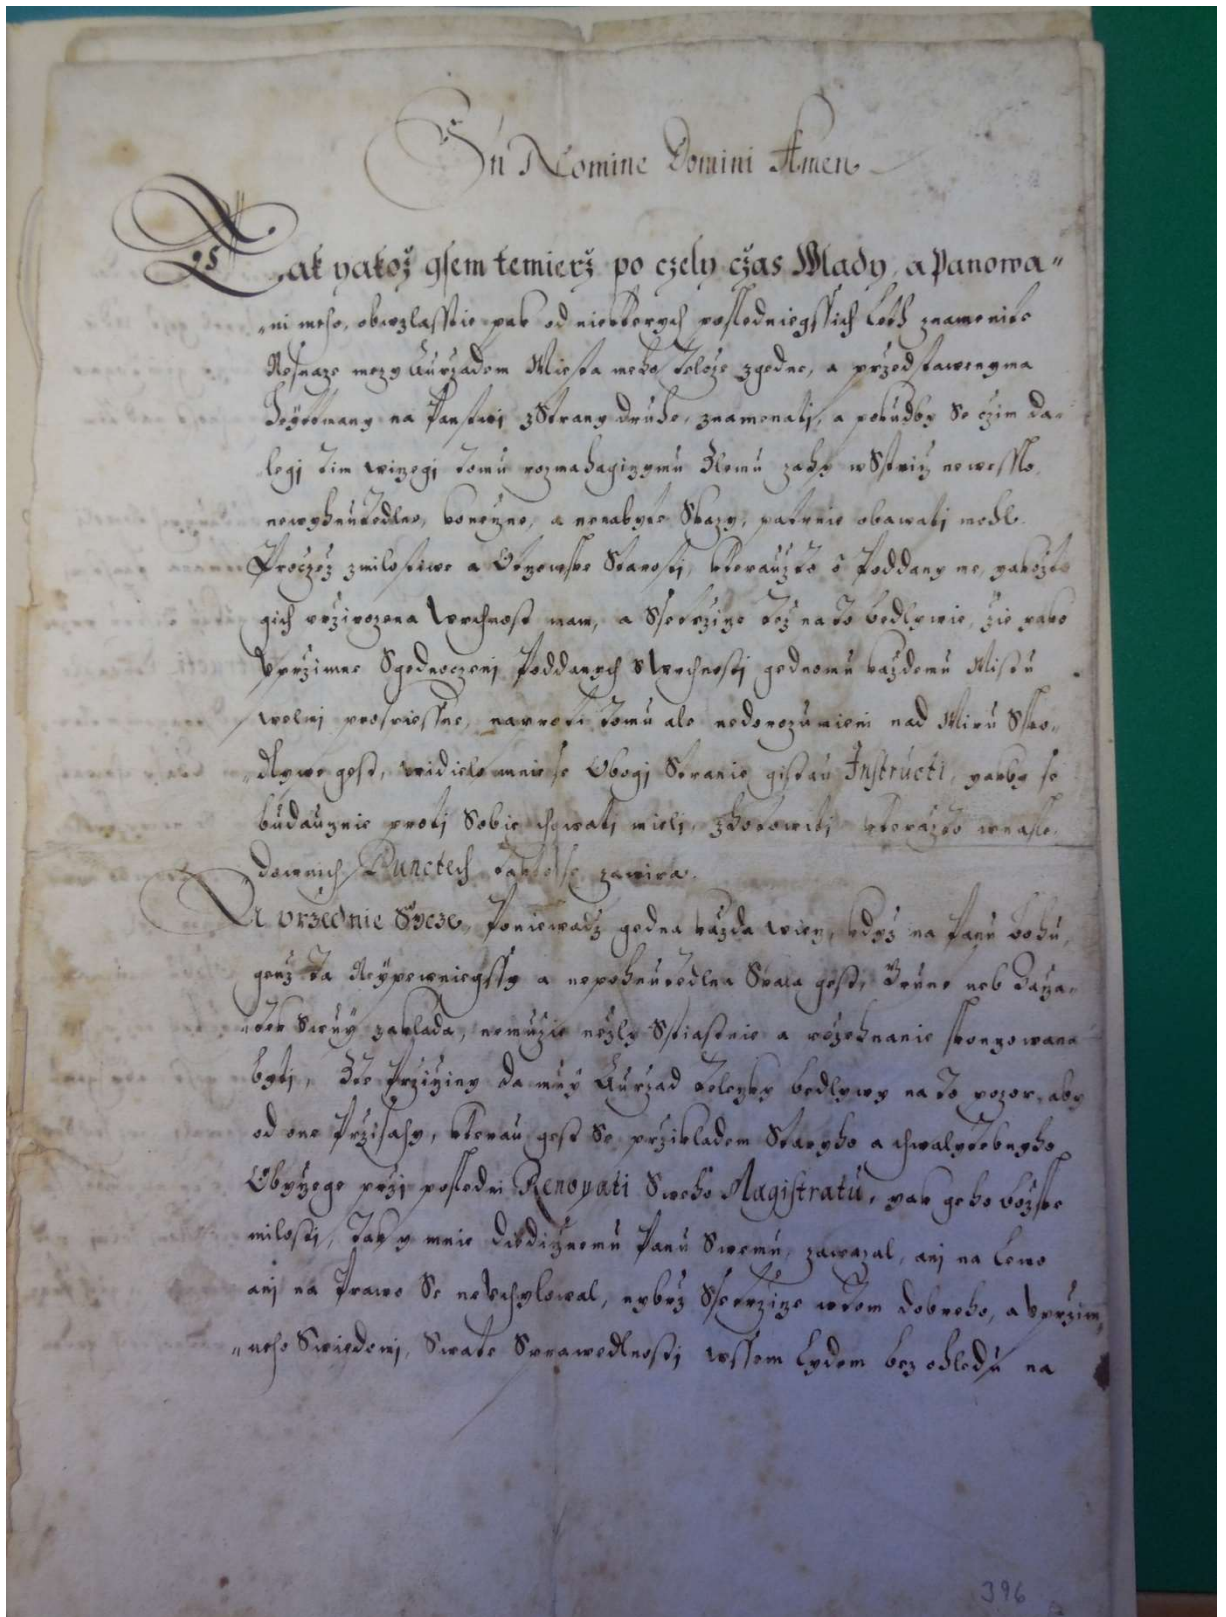 In Nomine Domini Amen
Jak yakož gsem temierž po czely cžas Wlady, a Panowa„
„ni meho, obwzlasstie pak od niekterych posledniegssich Leth znamenite
Nesnaze mezy Auržadem Miesta meho Telcze zgedne, a przedstawenyma
Heytmany na Panstwj z Strany druhe, znamenati, a pokudby se czim da„
legj tim wiczegj tomu rozmahagiczymu Zlemu zahy wstricz newesslo
newyhnutedlne, konečzne, a nenabyte Skazy, patrnie obawatj mohl.
Procžež z milostiwe a Otczowske Starostj, kterauzto o Poddany me, yakožto
gich przirozena Wrchnost mam, a Ssetržicze tež na to bedlywie, žie yako
Vprzimne Sgednoczenj Poddanych s Wrchnostj gednomu každemu Mistu
welmj prospiessne, naproti tomu ale nedorozumieni nad Miru Sko„
„dlywe gest, widielo mnie se Obogj Stranie gistau Instructi, yakby se
budaucznie protj Sobie chowatj mielj, zhotowitj kterazto w nasle„
downich Punctech takto se zawira.
A vrzednie Sycze, Poniewadž gedna každa wiecz, kdyz na Panu Bohu,
genž ta Neypewniegssy a nepohnutedlna Skala gest, Grunt neb Zacza„
„tek Swuy zaklada, nemuzie nežly Sstiastnie a požehnanie skonczowana
bytj, Z te Pržicziny da muy Auržad Telczky bedlywy na to pozor, aby
od one Pržisahy, kterau gest se pržikladem Staryho a chwalytebnyho
Obyczege pržj posledni Renovati Sweho Magistratu, yak geho božske
milostj, tak y mnie Diedicznemu Panu Swemu, zawazal, anj na Lewo
anj na Prawo Se nevchylowal, nybrž Ssetržicze w tom dobreho, a vpržim„
„neho Swiedomj, Swate Sprawedlnostj wssem Lydem bez ohledu na
396